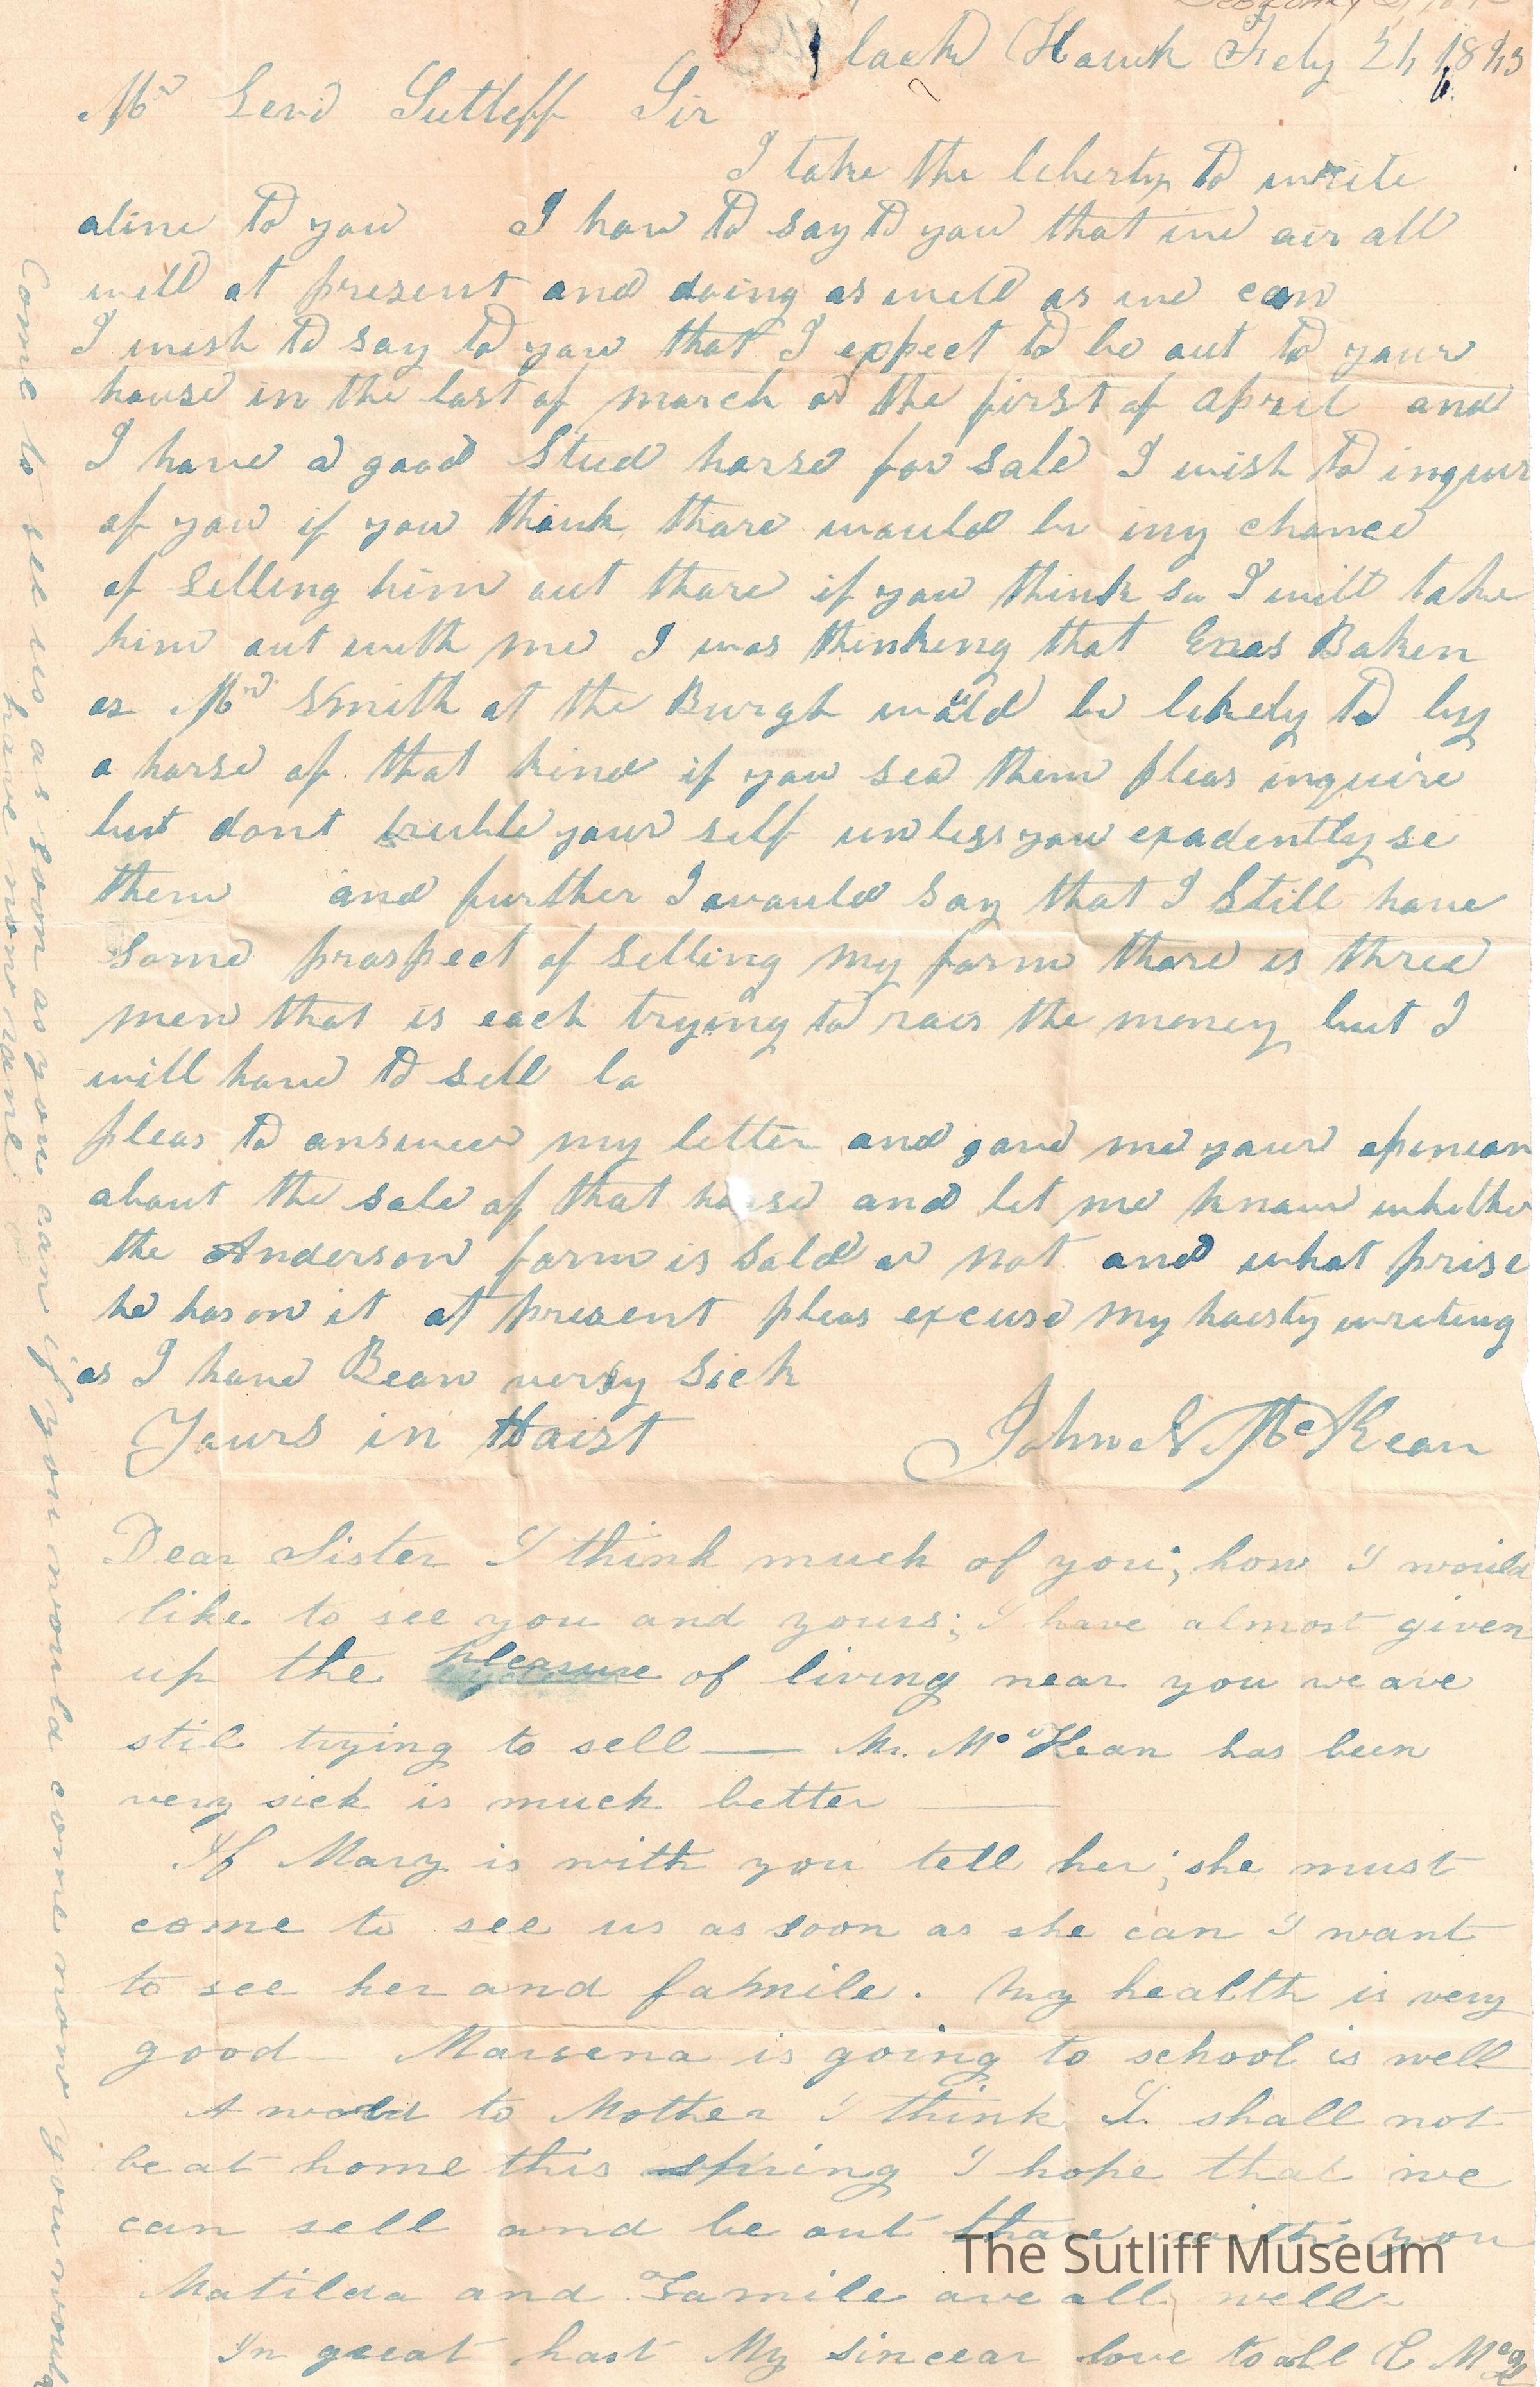 lack Hawk Feby 21 1843
Mr Levi Sutleff Sir
I take the liberty to write
aline to you I hav to say to you that we air all
well at present and doing as well as we can
I wish to say to you that I expect to be out to your
house in the last of march or the first of April and
I have a good Stud horse for sale I wish to inquir
of you if you think thare would be iny chance
of Selling him out thare if you think so I will take
him out with me I was thinking that Enos Baken
or Mr Smith at the Burgh would be likely to by
a horse of that kind if you sea them pleas inquire
but dont truble your self unless you exadently se
them and further I would Say that I Still have
Some prospect of Selling my farm thare is three
men that is each trying to rais the money but I
will have to sell lo
pleas to answer my letter and gave me your openion
about the sale of that horse and let me know whether
the Anderson farm is Sold or not and what prise
he has on it at present pleas excuse my haisty writing
as I have Bean verry Sick
Yours in Haist John McKean
Dear Sister I think much of you; how I would
like to see you and yours; I have almost given
up the pleasure of living near you we are
stil trying to sell — Mr. McKean has been
very sick is much better —
If Mary is with you tell her; she must
come to see us as soon as she can I want
to see her and famile. My health is very
good — Marcena is going to school is well
A word to Mother I think I. shall not
be at home this spring I hope that we
can sell and be out thare with you
Matilda and Famile are all well
In great hast My sincear love to all E McK
Come to see us as soon as you can if you would come now you would
have none
The Sutliff Museum